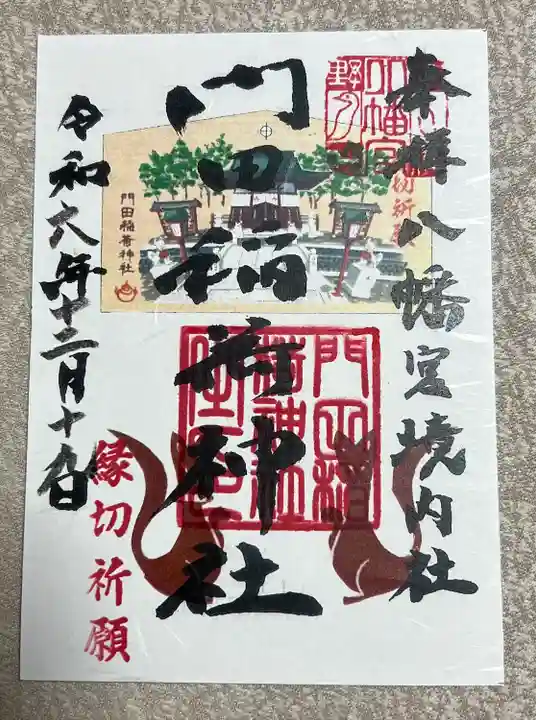 奉拝八幡宮境内社
門田稲荷神社
令和六年十二月十九日
縁切祈願
切祈願
門田稲荷神社
八幡宮
門田稲
荷神社